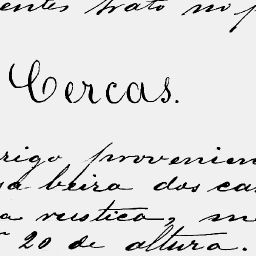 entes trato no p
Cercas.
rigo provenien
sa beira dos ca
a rustica, me
20 de altura.